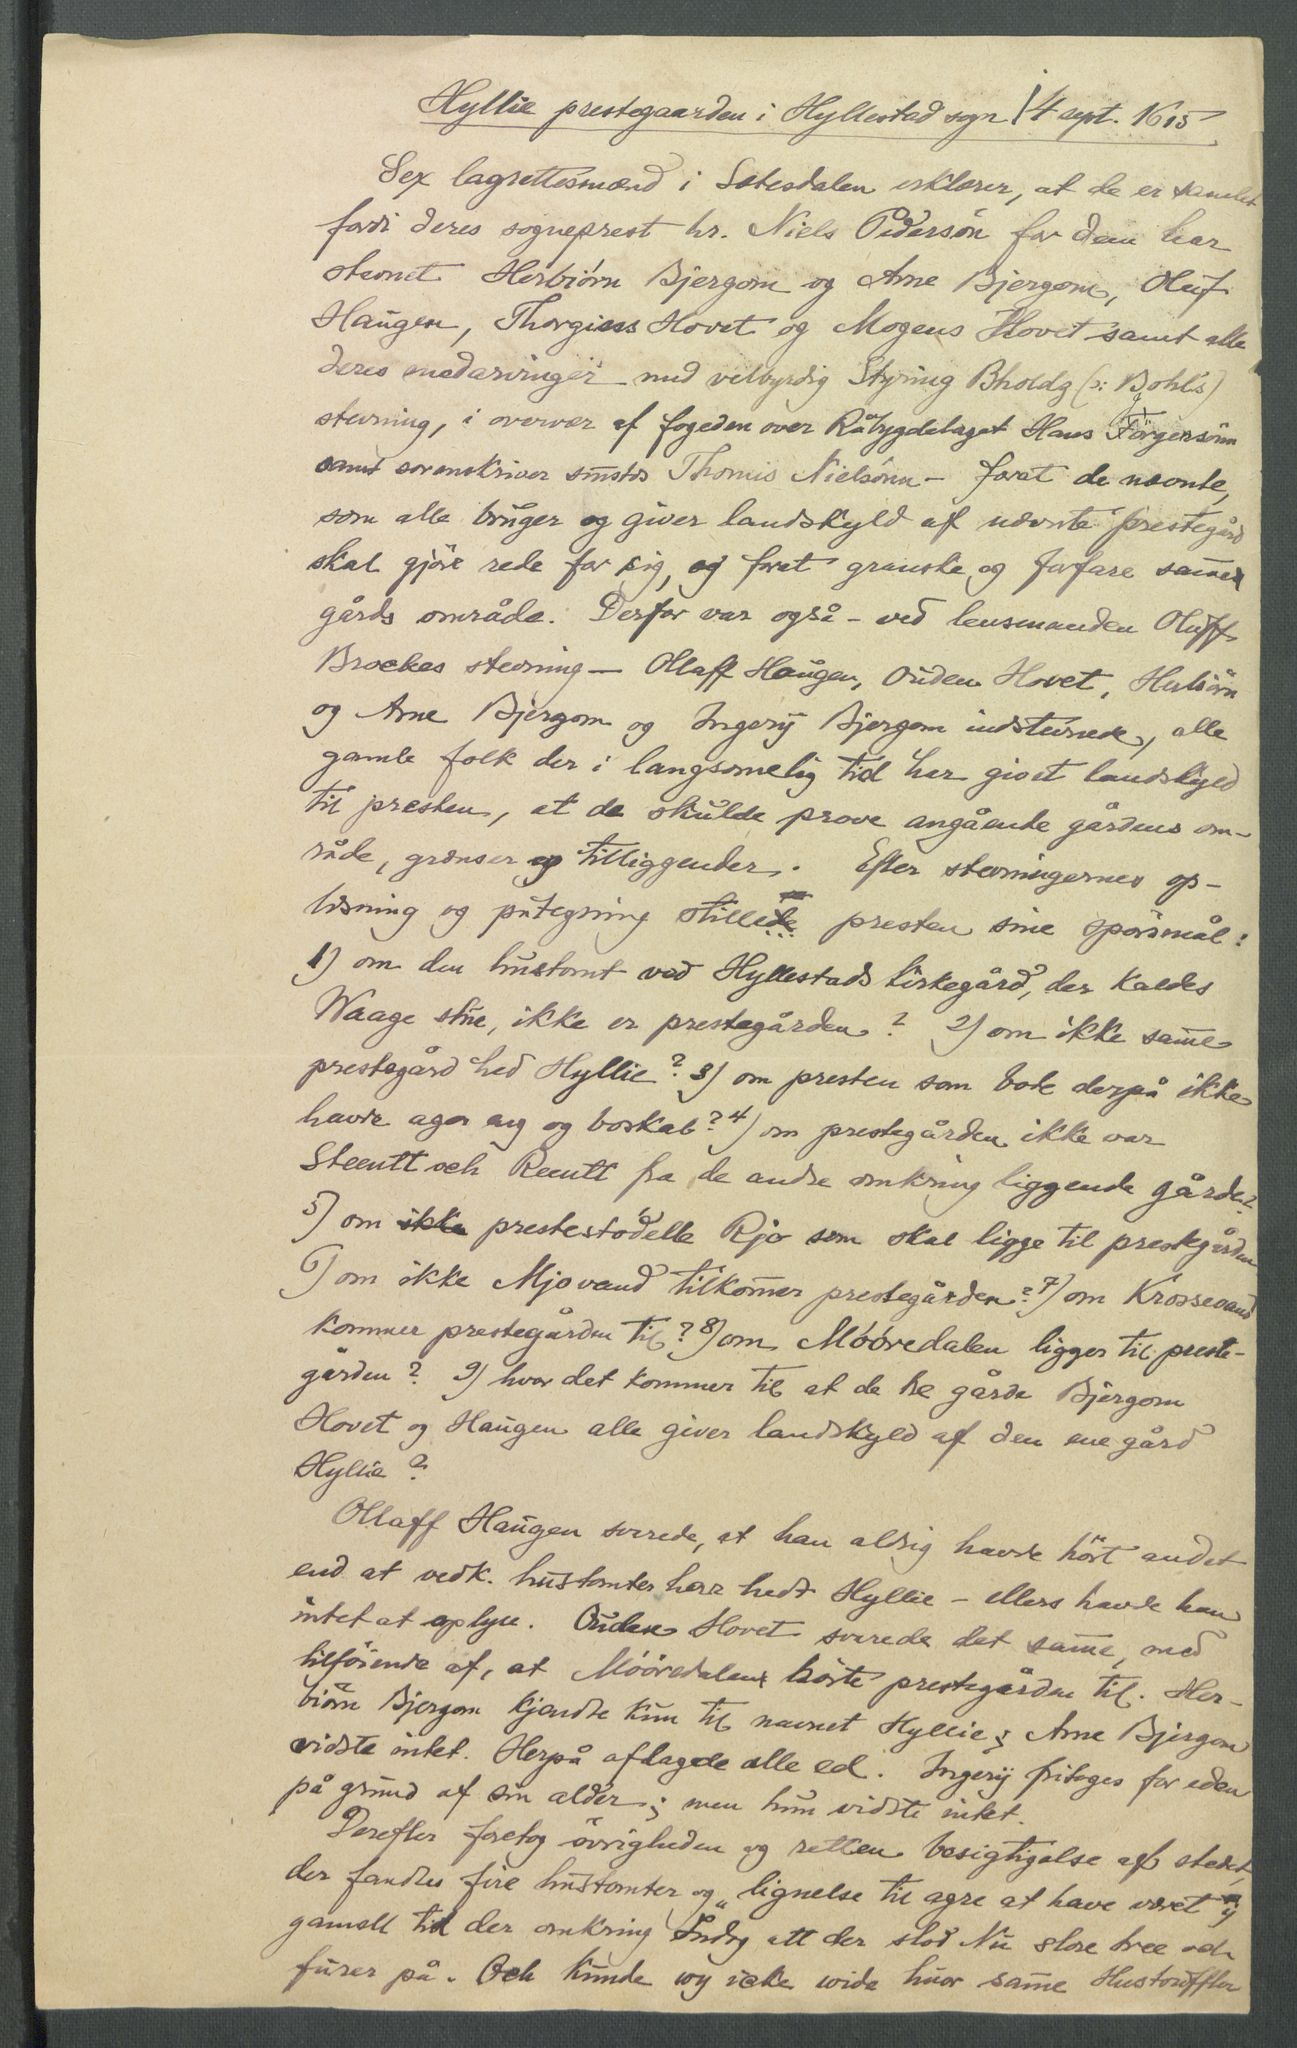 Hyllie prestegaarden i Hyllestad sogn 14 sept. 1615
Sex lagrettesmænd i Sætesdalen erklærer, at de er samlet
fordi deres sogneprest hr. Niels Pedersön for dem har
stevnet Herbiörn Bjergom og Arne Bjergom, Oluf
Haugen, Thorgiuss Hovet og Mogens Hovet samt alle
deres medarvinger med velbyrdig Styring Bholdz (ɔ: Bohl's)
stevning, i overvær af fogeden over Råbygdelaget Hans Förgersönn
samt sorenskriver smstds Thomis Nielsönn – forat de nævnte,
som alle bruger og giver landskyld af nævnte prestegård
skal gjöre rede for sig, og forat granske og forfare samme
gårds område. Derfor var også – ved lensmanden Oluff
Brockes stevning – Ollaff Haugen, Ouden Hovet, Herbiörn
og Arne Bjergom og Ingerij Bjergom indstevnede, alle
gamle folk der i langsomelig tid har givet landskyld
til presten, at de skulde prove angående gårdens om-
råde, grænser og tilliggender. Efter stevningernes op-
læsning og påtegning stillede presten sine spörsmål:
1) om den hustomt ved Hyllestads kirkegård, der kaldes
Waage stue, ikke er prestegården? 2) om ikke samme
prestegård hed Hyllie? 3) om presten som bode derpå ikke
havde ager eng og boskab? 4) om prestegården ikke var
Steentt och Reentt fra de andre omkring liggende gårde?
5) om ikke prestestödelle Rjo som skal ligge til prestegården
6) om ikke Mjovand tilkommer prestegården? 7) om Krossevand
kommer prestegården til? 8) om Mööredalen ligger til preste-
gården? 9) hvor det kommer til at de tre gårde Bjergom
Hovet og Haugen alle giver landskyld af den ene gård
Hyllie?
Ollaff Haugen svarede, at han aldrig havde hört andet
end at vedk. hustomter her hedt Hyllie – ellers havde han
intet at oplyse. Ouden Hovet svarede det samme, med
tilföiende af, at Mööredalen hörte prestegården til. Her-
biörn Bjergom kjendte kun til navnet Hyllie; Arne Bjergom
vidste intet. Herpå aflagde alle ed. Ingerij fritoges for eden
på grund af sin alder; men hun vidste intet.
Derefter foretog övrigheden og retten besigtigelse af stedet,
der fandtes fire hustomter og „lignelse til agre at have været y
gamell tid der omkring Endog att der stod Nu store tree och
furer på. Och kunde wy icke wide huor samme Hustoufter